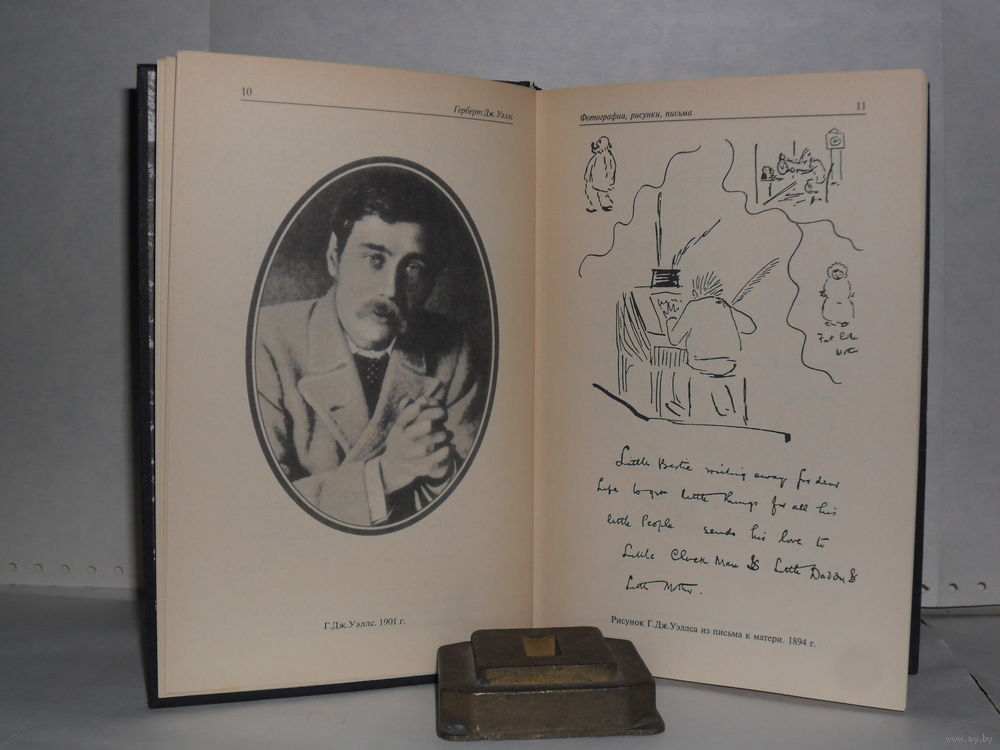 10
Герберт Дж. Уэллс
Г.Дж.Уэллс. 1901 г.
Фотографии, рисунки, письма
11
Fat Little
Mother
Little Bertie writing away for dear
life to get little things for all his
little People sends his love to
Little Clock Man & Little Daddy &
Little Mother.
Рисунок Г.Дж.Уэллса из письма к матери. 1894 г.
www.ay.by